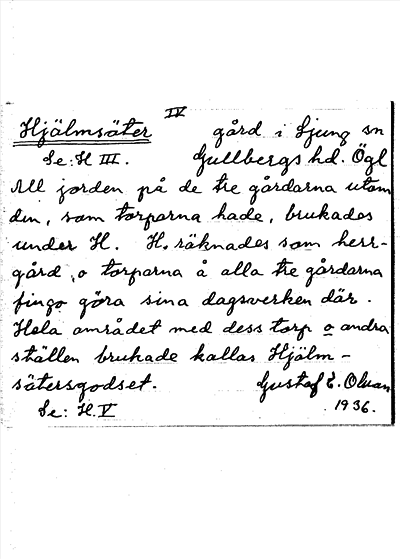 IV
Hjälmsäter gård i Ljung sn
Se: H III. Gullbergs hd. Ögl
All jorden på de tre gårdarna utom
den, som torparna hade, brukades
under H. H. räknades som herr-
gård, o torparna å alla tre gårdarna
fingo göra sina dagsverken där.
Hela området med dess torp o andra
ställen brukade kallas Hjälm-
sätersgodset. Gustaf E. Olsson
Se: H. V 1936.